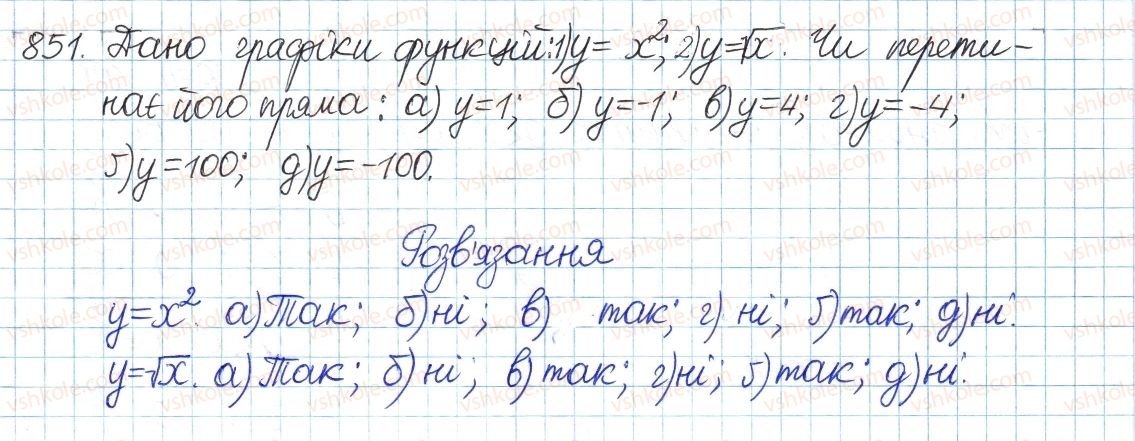 851. Дано графіки функцій: 1) y = x²; 2) y = √x. Чи перети-
нає його пряма: а) y = 1; б) y = -1; в) y = 4; г) y = -4;
ґ) y = 100; д) y = -100.
Розв'язання
y = x². а) Так; б) ні; в) так; г) ні; ґ) так; д) ні.
y = √x. а) Так; б) ні; в) так; г) ні; ґ) так; д) ні.